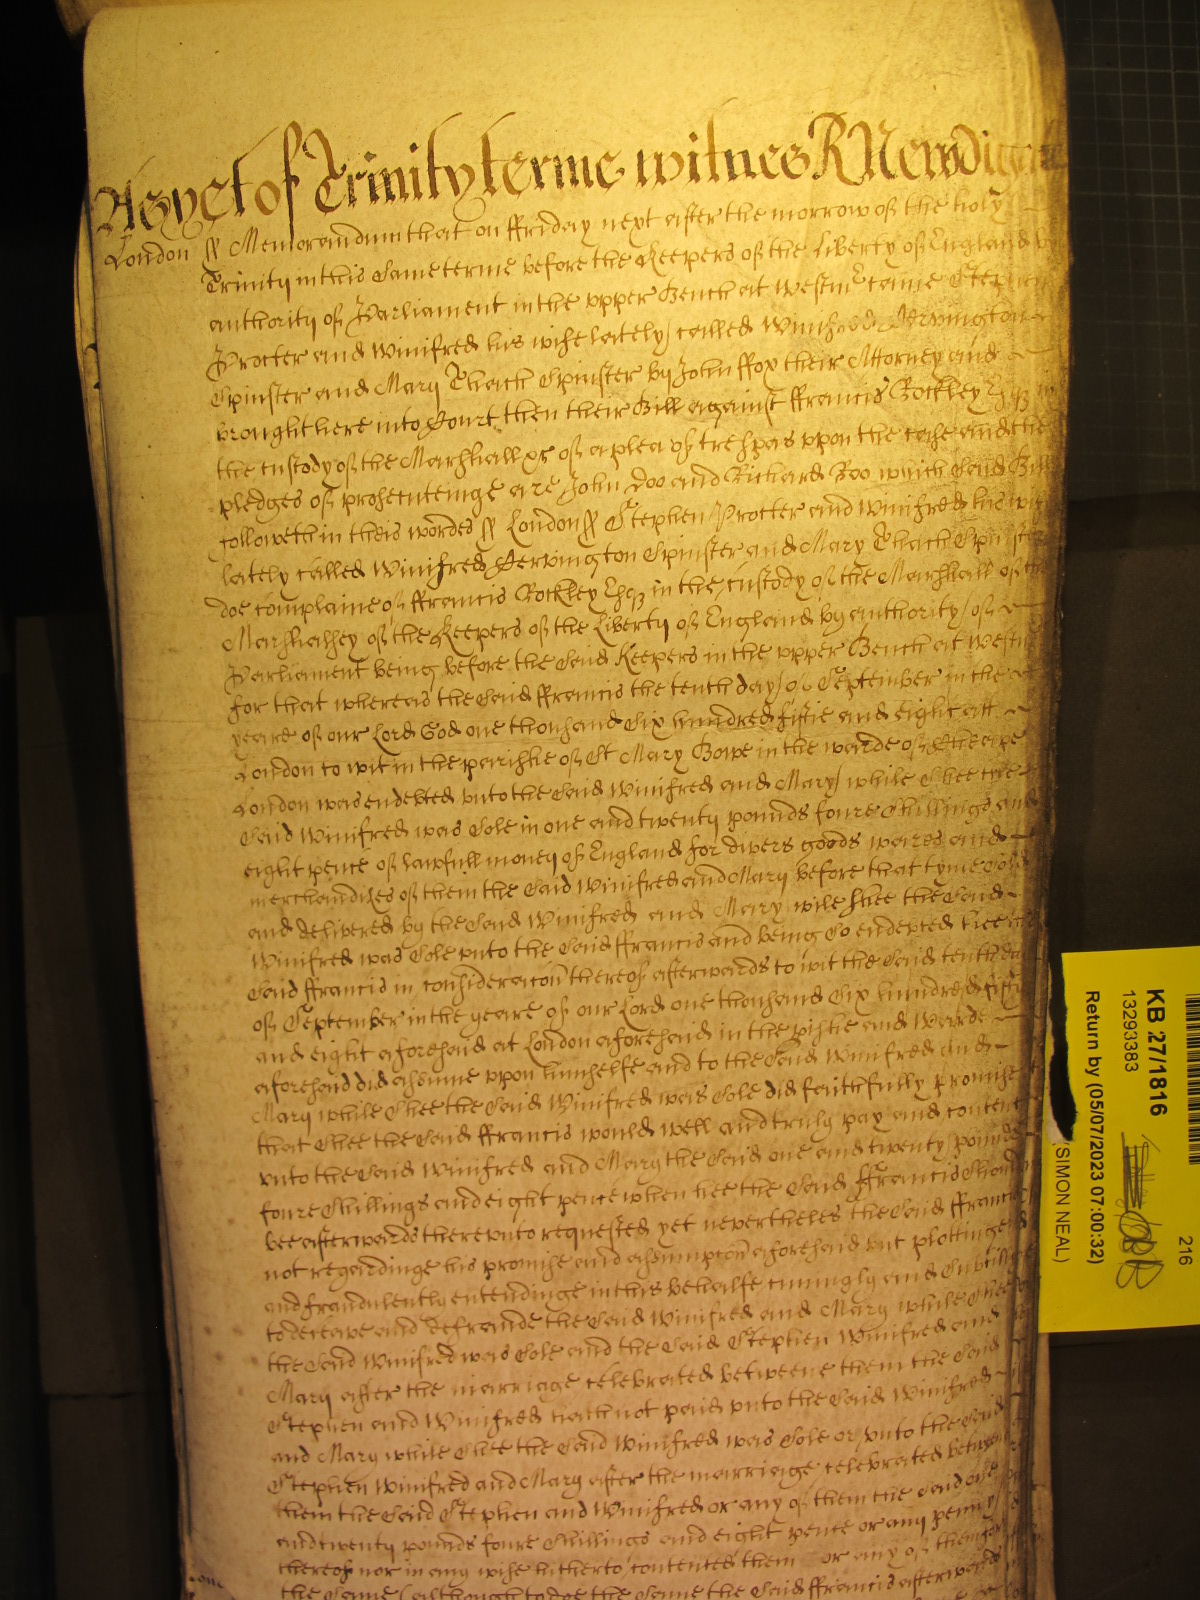 As yet of Trinity terme witnes R Newdigate
London ss Memorandum that on ffriday next after the morrow of the holy
Trinity in this same terme before the Keepers of the Liberty of England by
authority of Parliament in the upper Bench at Westmr came Stephen
Procter and Winifred his wife lately called Winifred
Spinster and Mary Thach Spinster by John ffox their Attorney and
brought here into Court then their Bill against ffrancis Rockley Esqr in
the custody of the Marshall &c of a plea of trespas upon the case and the
pledges of prosecuteinge are John Doo and Richard Roo which said Bill
followeth in theis wordes ss London ss Stephen Procter and Winifred his wife
lately called Winifred Spinster and Mary Thach Spinster
doe complaine of ffrancis Rockley Esqr in the custody of the Marshall of the
Marshalsey of the Keepers of the Liberty of England by authority of
Parliament being before the said Keepers in the upper Bench at Westmr
for that whereas the said ffrancis the tenth day of September in the
yeare of our Lord God one thousand six hundred fiftie and eight att
London to wit in the parishe of St Mary Bowe in the warde of Cheape
London was endebted unto the said Winifred and Mary while shee the
said Winifred was sole in one and twenty pounds foure shillings and
eight pence of lawfull money of England for divers goods wares and
merchandizes of them the said Winifred and Mary before that tyme sold
and delivered by the said Winifred and Mary wile shee the said
Winifred was sole unto the said ffrancis and being so endepted hee the
said ffrancis in consideracon thereof afterwards to wit the said tenth day
of September in the yeare of our Lord one thousand six hundred fiftie
and eight aforesaid at London aforesaid in the pishe and Warde
aforesaid did assume upon himselfe and to the said Winifred and
Mary while shee the said Winifred was sole did faithfully promise
that hee the said ffrancis would well and truly pay and content
unto the said Winifred and Mary the said one and twenty pounds
foure shillings and eight pence when hee the said ffrancis should
bee afterwards thereunto requested yet nevertheles the said ffrancis
not regardinge his promise and assumpcon aforesaid but plottinge
and fraudulently entendinge in this behalfe cuningly and subtilly
to deceave and defraude the said Winifred and Mary while shee
the said Winifred was sole and the said Stephen Winifred and
Mary after the marriage celebrated betweene them the said
Stephen and Winifred hath not paid unto the said Winifred
and Mary while shee the said Winifred was sole or unto the said
Stephen Winifred and Mary after the marriage celebrated betweene
them the said Stephen and Winifred or any of them the said one
and twenty pounds foure shillings and eight pence or any penny
thereof nor in any wise hitherto contented them or any of them for
the same (although to doe the same the said ffrancis afterwards
KB 27/1816
13293383
Return by (05/07/2023 07:00:32)
(SIMON NEAL)
216